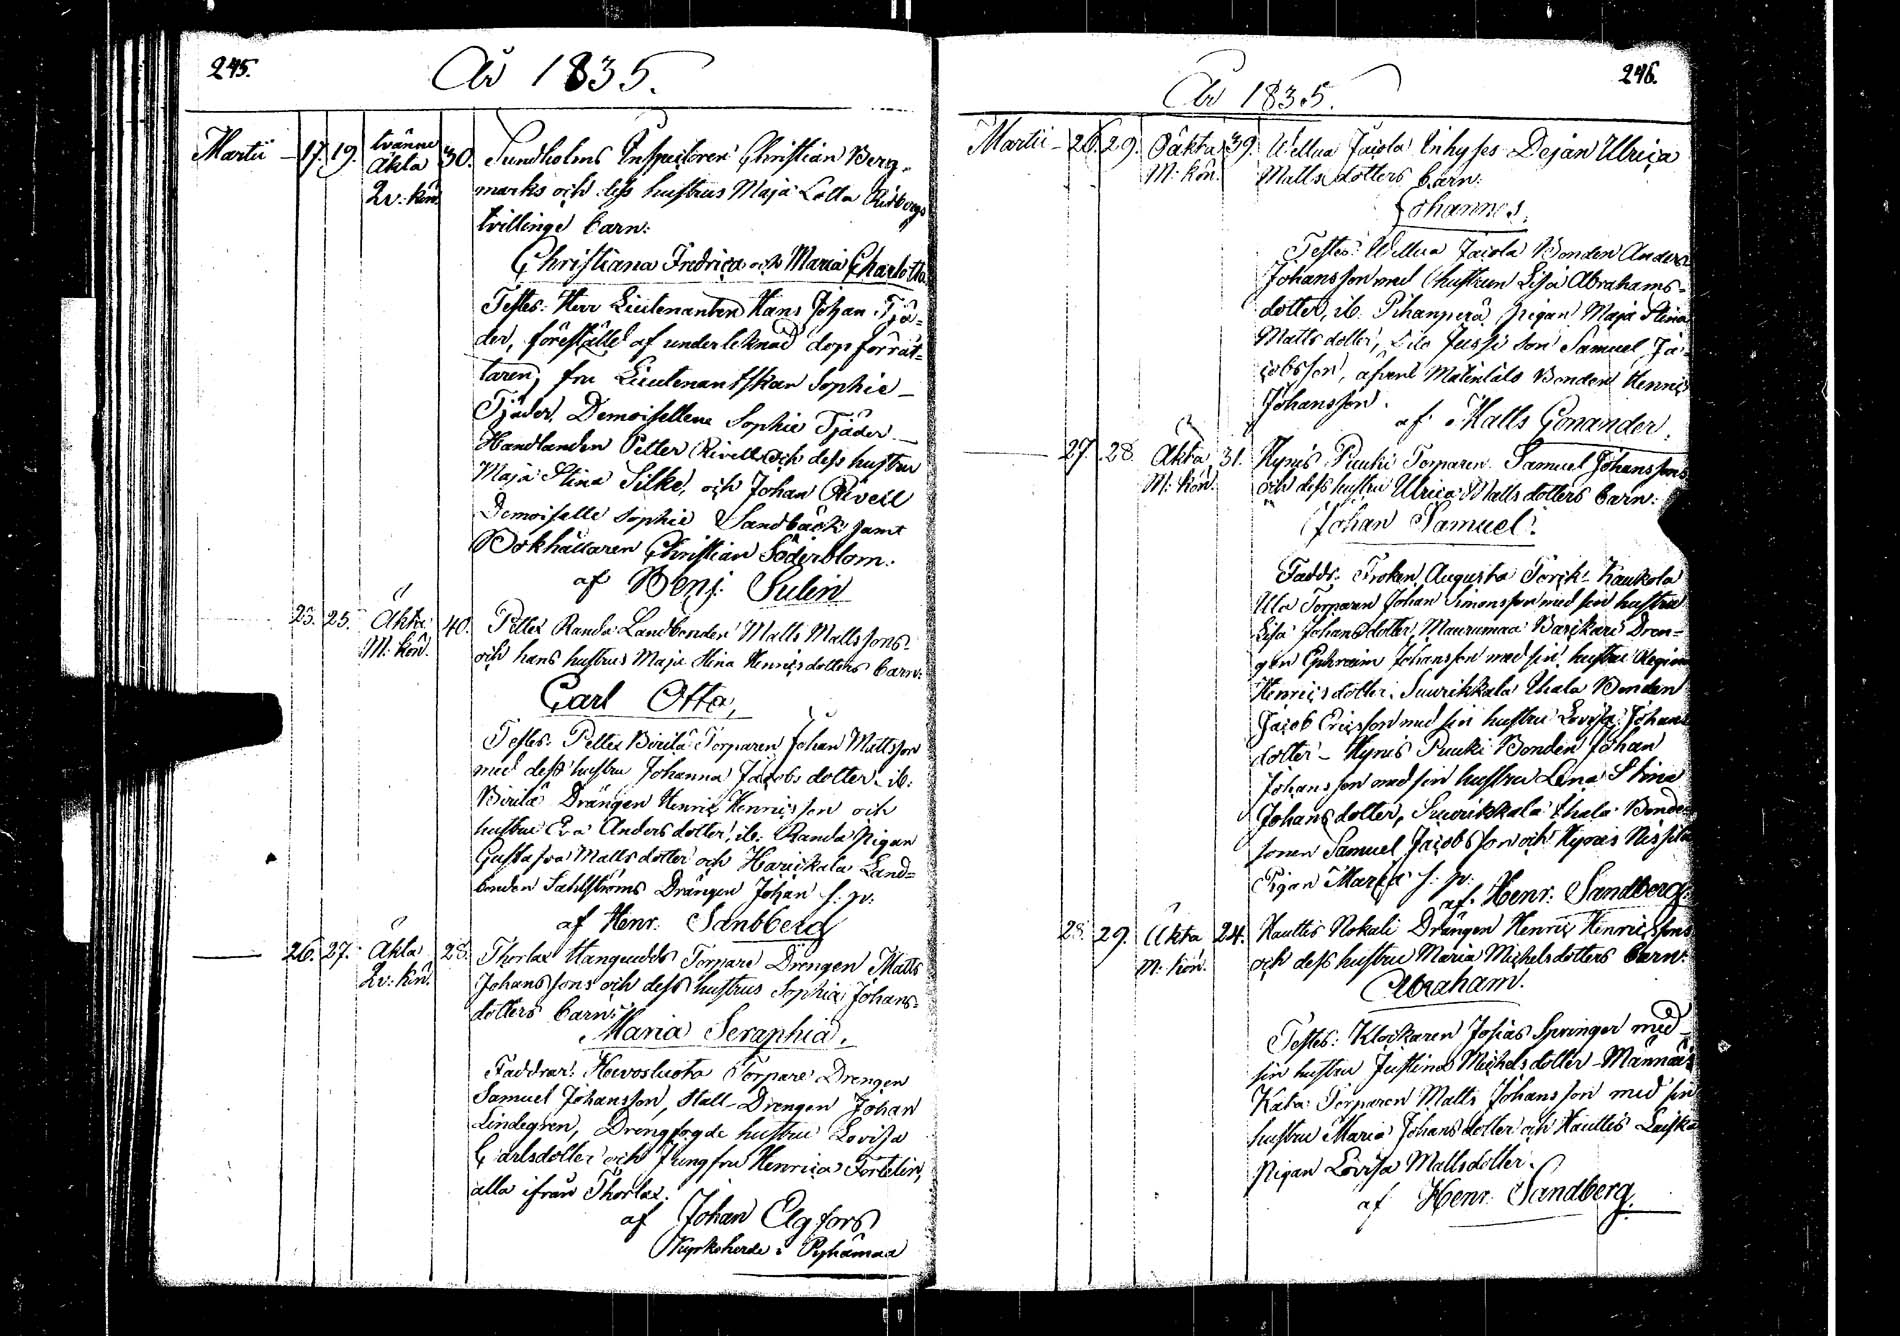 245.
År 1835.
Martii 17. 19. tvänne Äkta Qv: kön. 30. Sundholms Inspectoren Christian Berg-
marks och dess hustrus Maja Lotta
tvillinge barn:
Christiana Fredrica och Maria Charlotta.
Testes: Herr Lieutenanten Hans Johan Tjä-
der, föreställd af underteknad dop förrät-
taren, fru Lieutenantskan Sophie
Tjäder, Demoisellene Sophie Tjäder
Handlanden Petter Rivell och dess hustru
Maja Stina Silke, och Johan Rivell
Demoiselle Sophie Sandbäck samt
Bokhållaren Christian Söderblom.
af Benj. Sulin
25. 25. Äkta M: kön. 40. Randa Landbonden Matts Mattssons
och hans hustrus Maja Stina Henricsdotters barn:
Carl Otto,
Testes: Torparen Johan Mattsson
med dess hustru Johanna Jacobs dotter, ib:
Drängen Henric Henricsson och
hustru Eva Anders dotter, ib: Randa Pigan
Gustafva Matts dotter och Land=
bonden Sahlströms Drängen Johan f: p:
af Henr. Sandberg
26. 27. Äkta Qv: kön. 28. Thorlax Hangudds Torpare Drengen Matts
Johanssons och dess hustrus Sophia Johans=
dotters barn:
Maria Seraphia.
Faddrar: Torpare Drengen
Samuel Johansson, Stall-Drengen Johan
Lindegren, Drengfogde hustru Lovisa
Carlsdotter och Jungfru Henrica Fortelin,
alla ifrån Thorlax.
af Johan Elgfors
Kyrkoherde i Pyhämaa
246.
År 1835.
Martii 26. 29. Oäkta M: kön. 39. Wellua Jaiola Inhyses Dejan Ulrica
Matts dotters barn:
Johannes,
Testes: Wellua Jaiola Bonden Anders
Johansson med hustrun Lisa Abrahams=
dotter, ib. Pihanperä pigan Maja Stina
Matts dotter, son Samuel Ja=
cobsson, Bonden Henric
Johansson.
af Matts Gonander.
27. 28. Äkta M: kön. 31. Kynis Puuki Torparen Samuel Johanssons
och dess hustru Ulrica Matts dotters barn:
Johan Samuel.
Faddr. Fröken Augusta Kaukola
Ula Torparen Johan Simonsson med sin hustru
Lisa Johans dotter, Maurumaa Dren=
gen Ephraim Johansson med sin hustru Regina
Henrics dotter, Suurikkala Uhala Bonden
Jacob Ericsson med sin hustru Lovisa Johans
dotter – Kynis Puuki Bonden Johan
Johansson med sin hustru Lena Stina
Johans dotter, Suurikkala Uhala Bonde
sonen Samuel Jacobsson och Kynis
Pigan Maria f: p:
af. Henr: Sandberg.
28. 29. Äkta M: kön. 24. Hauttis Nokali Drängen Henric Henricssons
och dess hustru Maria Michels dotters barn:
Abraham.
Testes: Klockaren Josias Springer med
sin hustru Justina Michels dotter – Männäis
Kata Torparen Matts Johansson med sin
hustru Maria Johans dotter och Hauttis
Pigan Lovisa Mattsdotter.
af Henr. Sandberg.